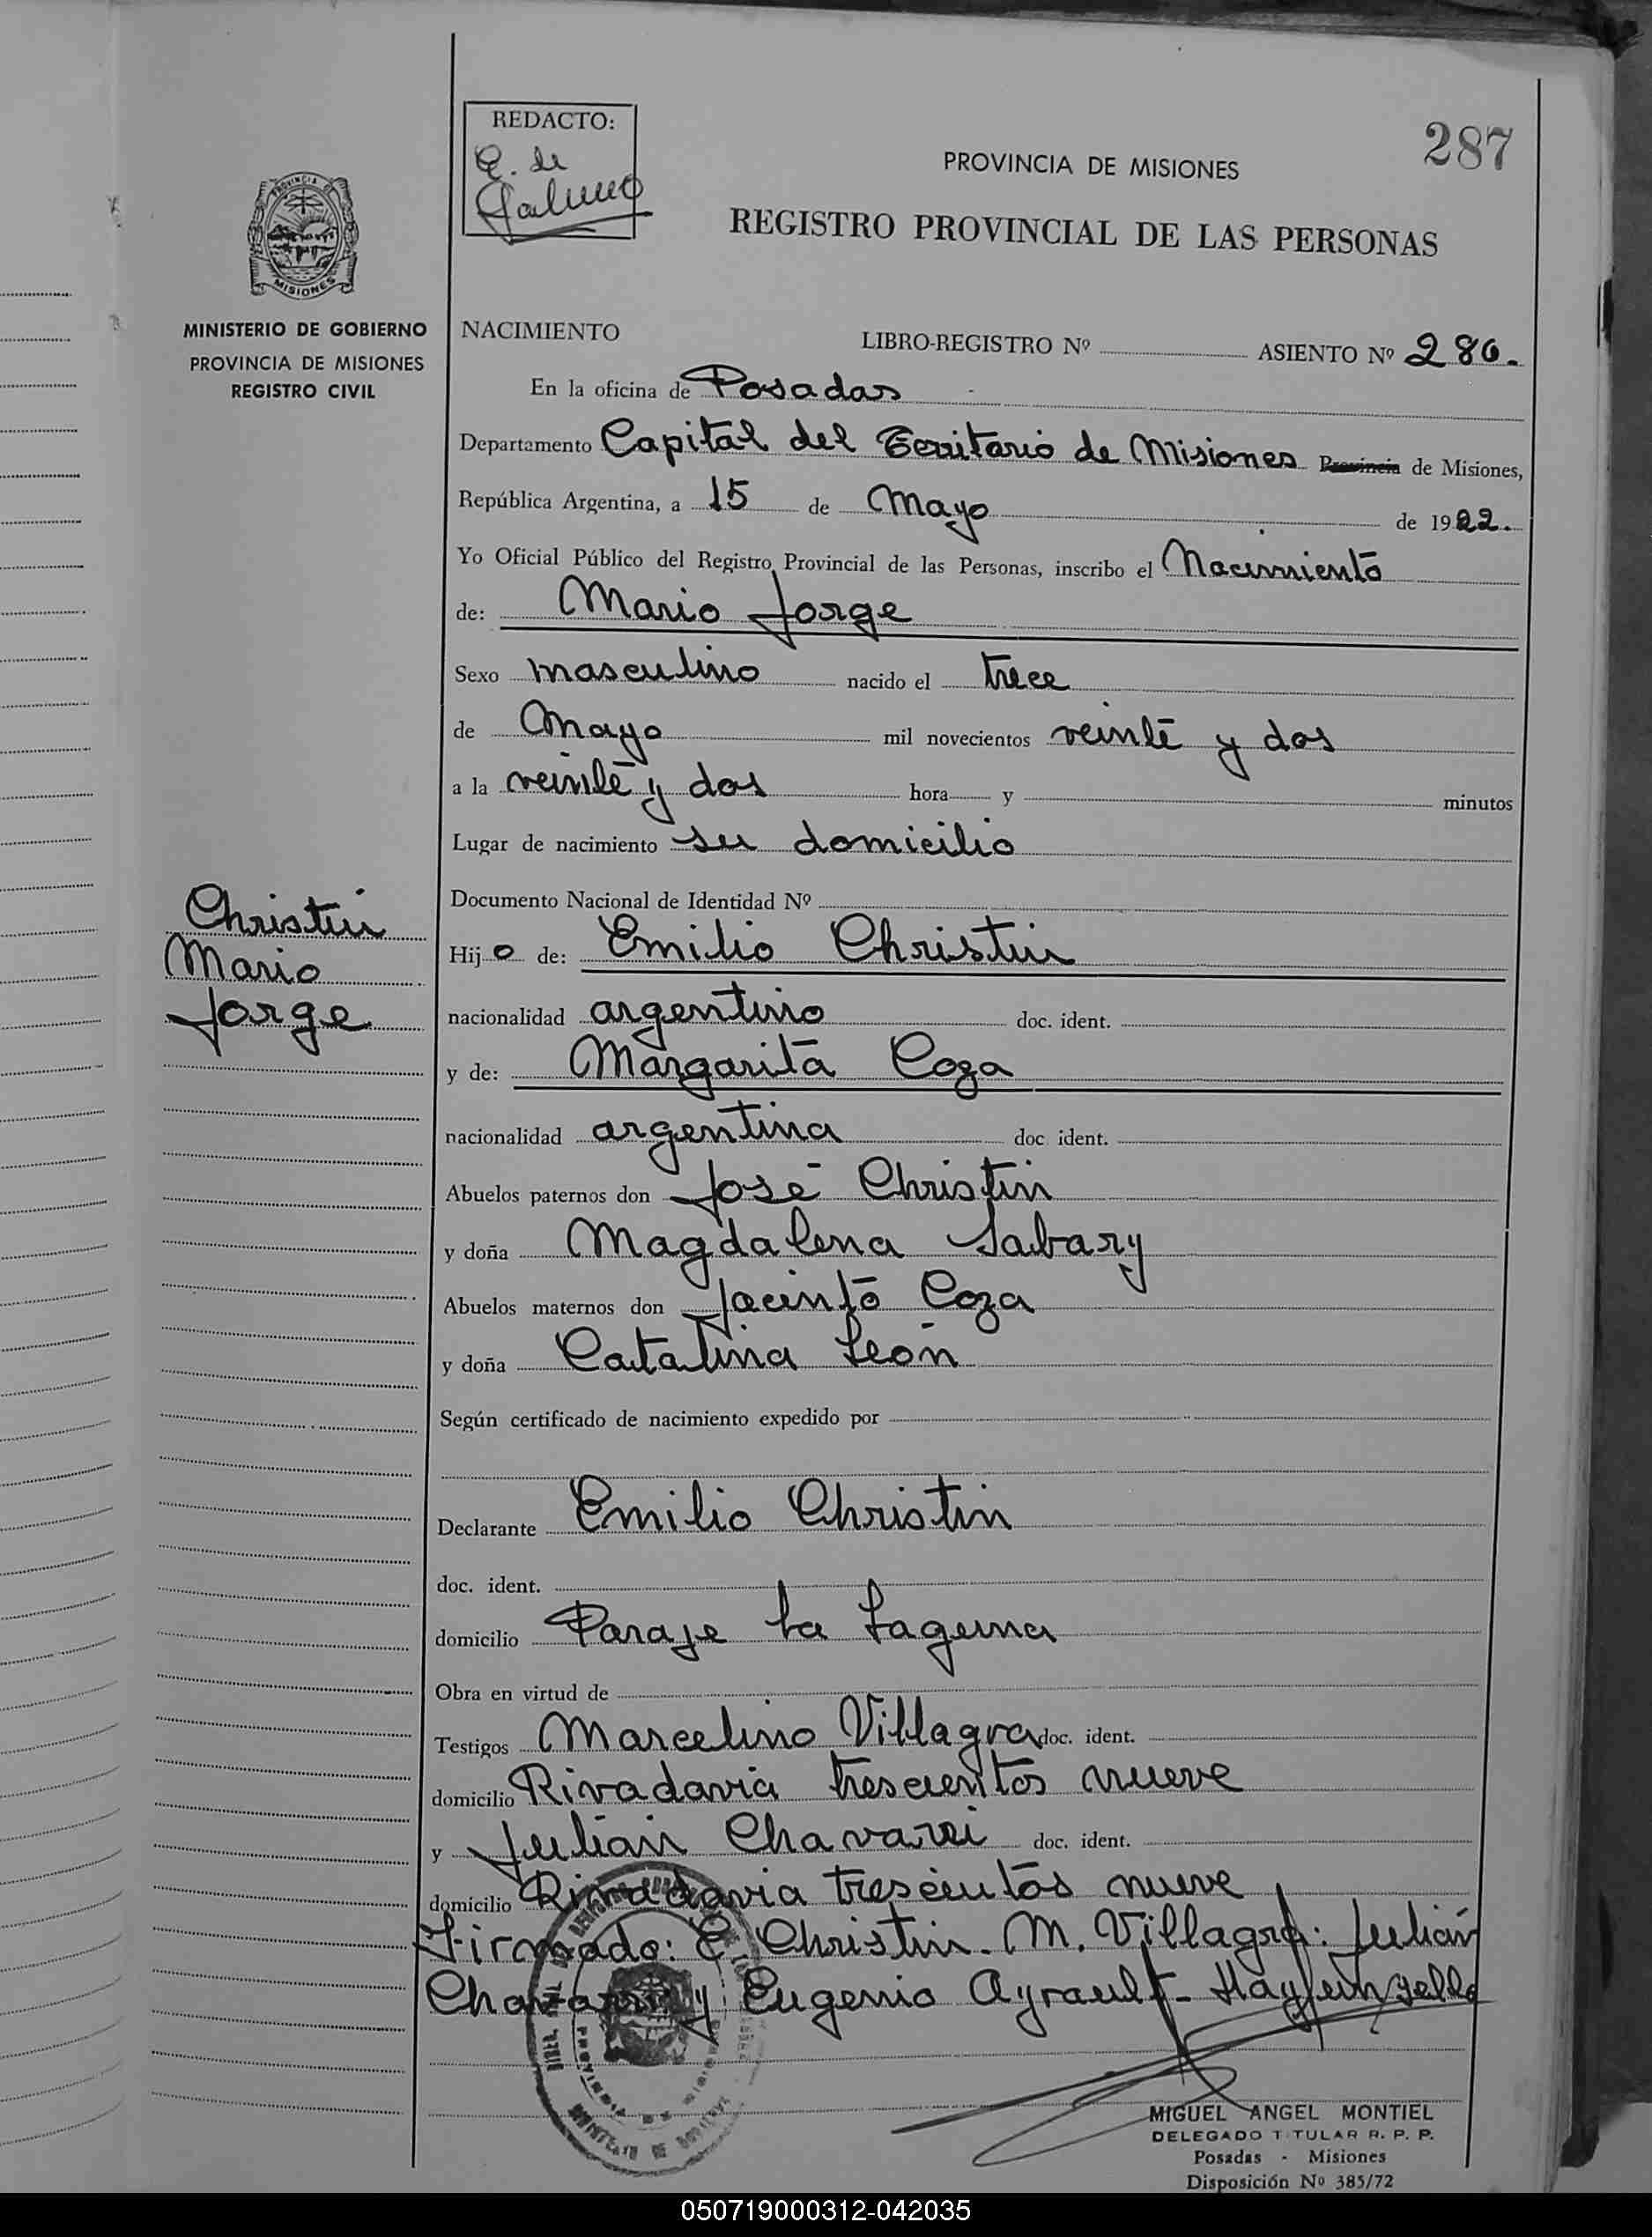 REDACTO:
287
PROVINCIA DE MISIONES
REGISTRO PROVINCIAL DE LAS PERSONAS
PROVINCIA DE
MISIONES
MINISTERIO DE GOBIERNO
PROVINCIA DE MISIONES
REGISTRO CIVIL
NACIMIENTO LIBRO-REGISTRO Nº ASIENTO Nº 286.
En la oficina de Posadas
Departamento Capital del Territorio de Misiones Provincia de Misiones,
República Argentina, a 15 de Mayo de 1922.
Yo Oficial Público del Registro Provincial de las Personas, inscribo el Nacimiento
de: Mario Jorge
Sexo masculino nacido el trece
de Mayo mil novecientos veinte y dos
a la veinte y dos hora y minutos
Lugar de nacimiento su domicilio
Documento Nacional de Identidad Nº
Christin
Mario
Jorge
Hijo de: Emilio Christin
nacionalidad argentino doc. ident.
y de: Margarita Coza
nacionalidad argentina doc ident.
Abuelos paternos don José Christin
y doña Magdalena Sabary
Abuelos maternos don Jacinto Coza
y doña Catalina León
Según certificado de nacimiento expedido por
Declarante Emilio Christin
doc. ident.
domicilio Paraje La Laguna
Obra en virtud de
Testigos Marcelino Villagra doc. ident.
domicilio Rivadavia trescientos nueve
y Julián Chavarri doc. ident.
domicilio Rivadavia trescientos nueve
Firmado: E. Christin. M. Villagra. Julián
Chavarri y Eugenio Ayrault - Hay un sello
MIGUEL ANGEL MONTIEL
DELEGADO TITULAR R. P. P.
Posadas - Misiones
Disposición Nº 385/72
050719000312-042035